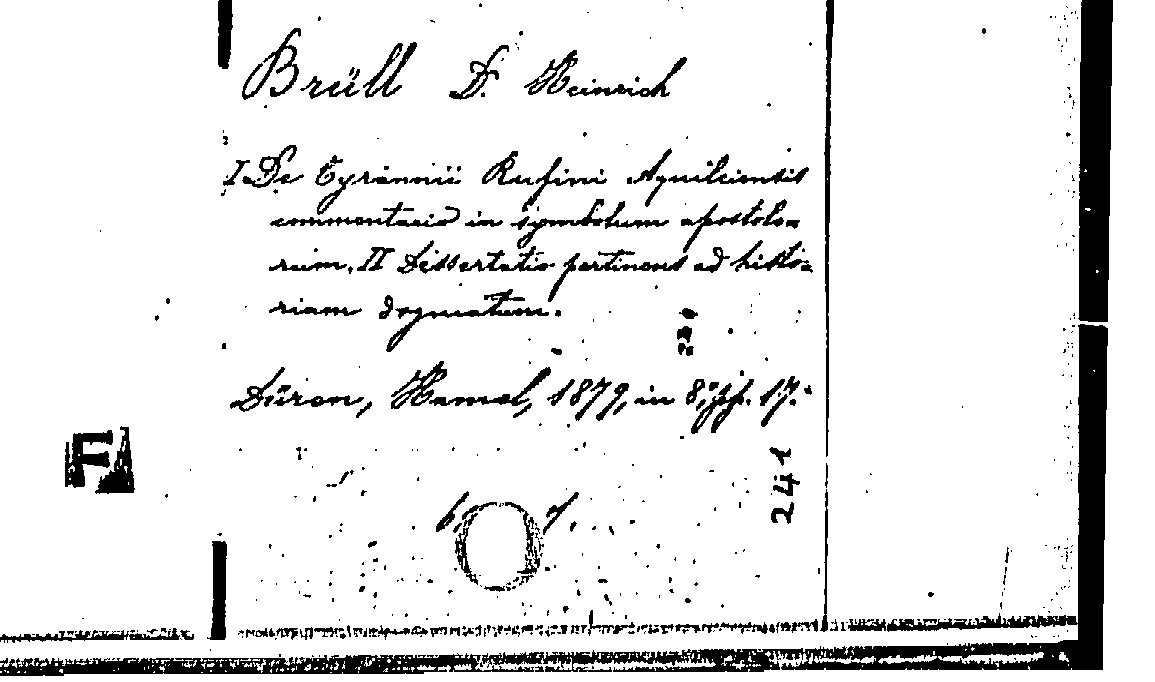 Brüll Dr. Heinrich
I De Tyrannii Rufini Aquileiensis
commentario in symbolum apostolo=
rum. II Dissertatio pertinens ad histo=
riam dogmatum.
Düren, Hamel, 1879, in 8,° pp. 17.
241
F